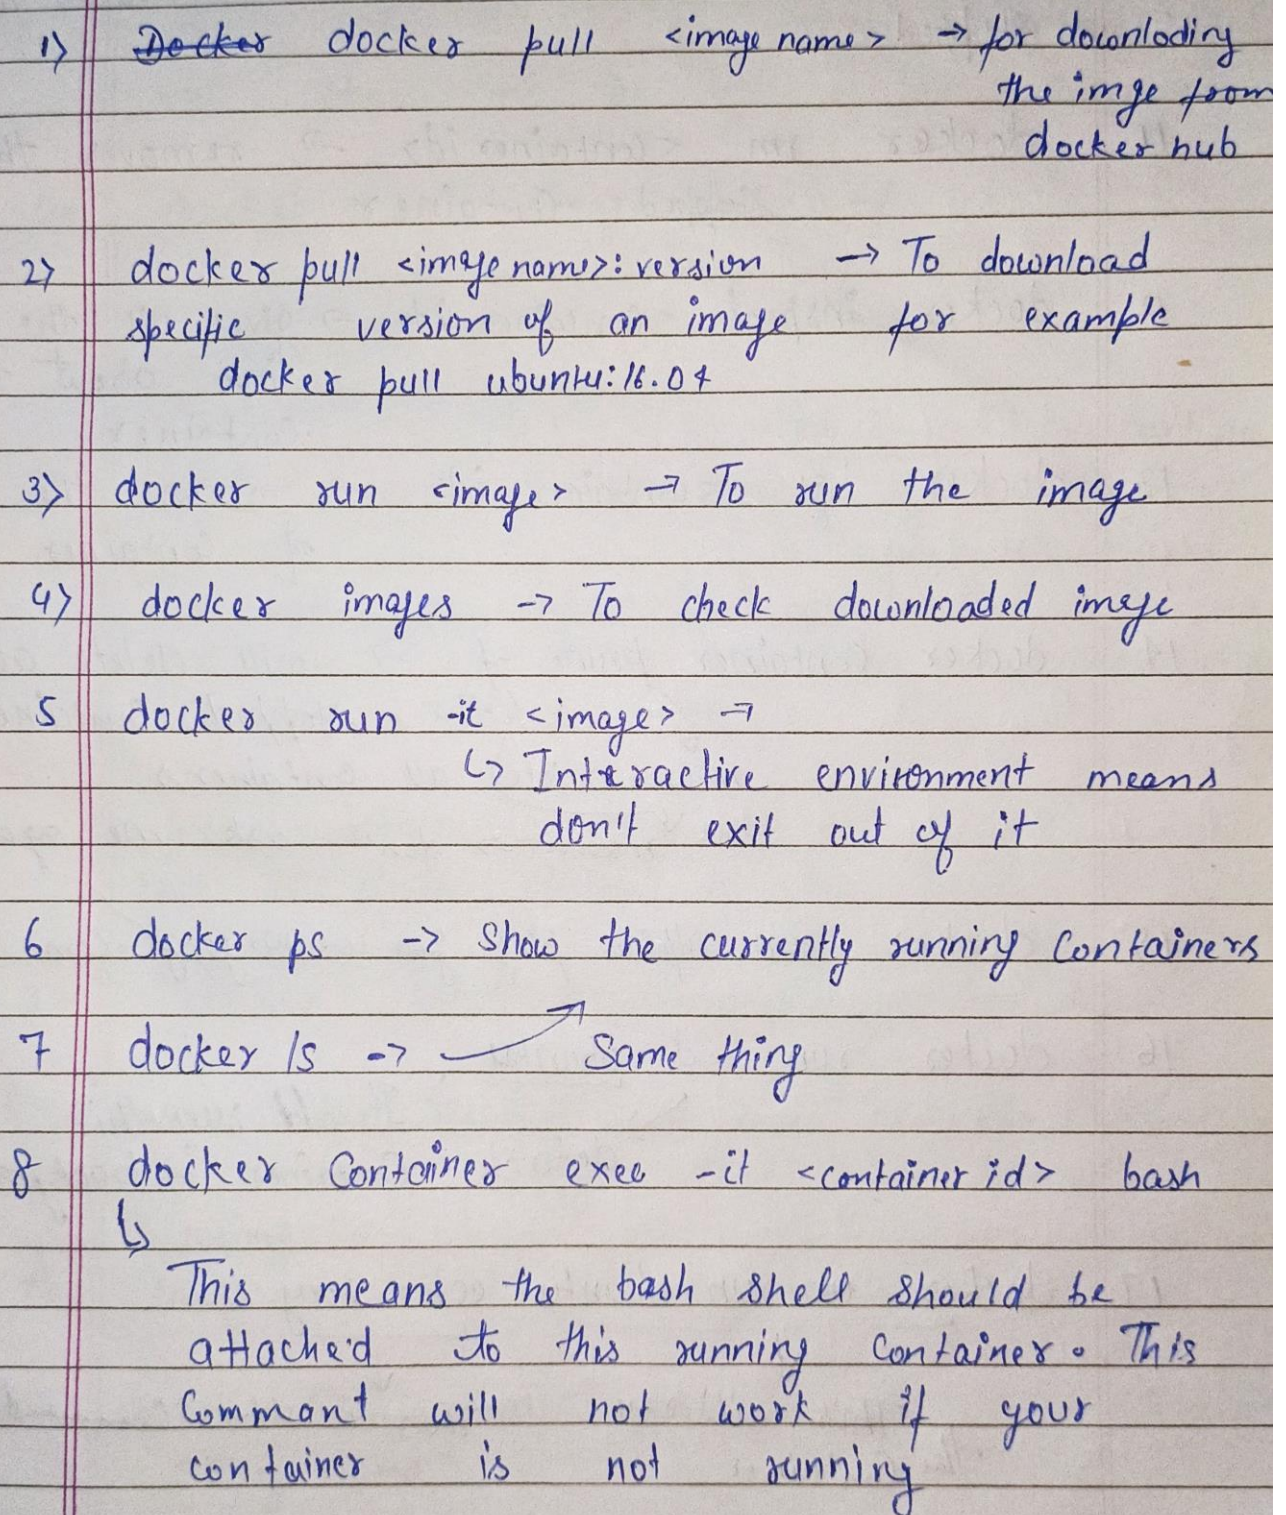 1) Docker docker pull <image name> → for downloding
the imge from
docker hub
2) docker pull <image name>: version → To download
specific version of an image for example
docker pull ubuntu:16.04
3) docker run <image> → To run the image
4) docker images → To check downloaded image
5 docker run -it <image> →
↳ Interactive environment means
don't exit out of it
6 docker ps → Show the currently running Containers
7 docker ls → Same thing
8 docker Container exec -it <container id> bash
↳
This means the bash shell should be
attached to this running Container. This
Commant will not work if your
container is not running